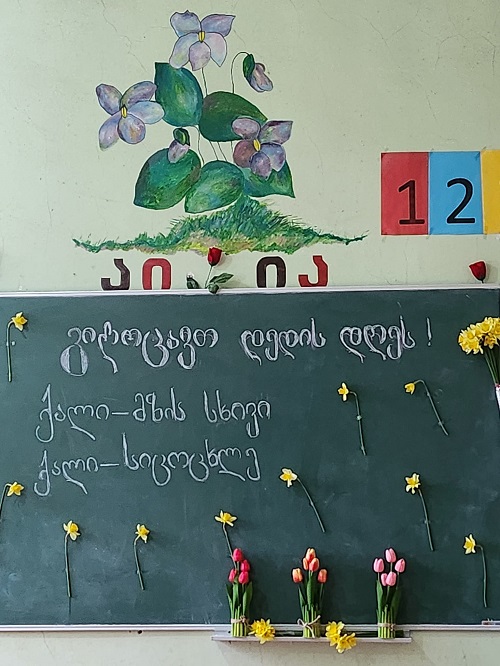 1 2
აი ია
გილოცავთ დედის დღეს !
ქალი – მზის სხივი
ქალი – სიცოცხლე